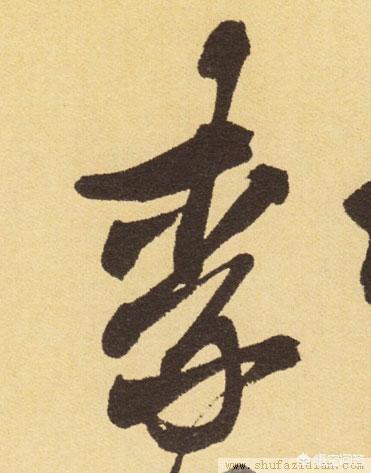 季
www.shufazidian.com
悟空问答